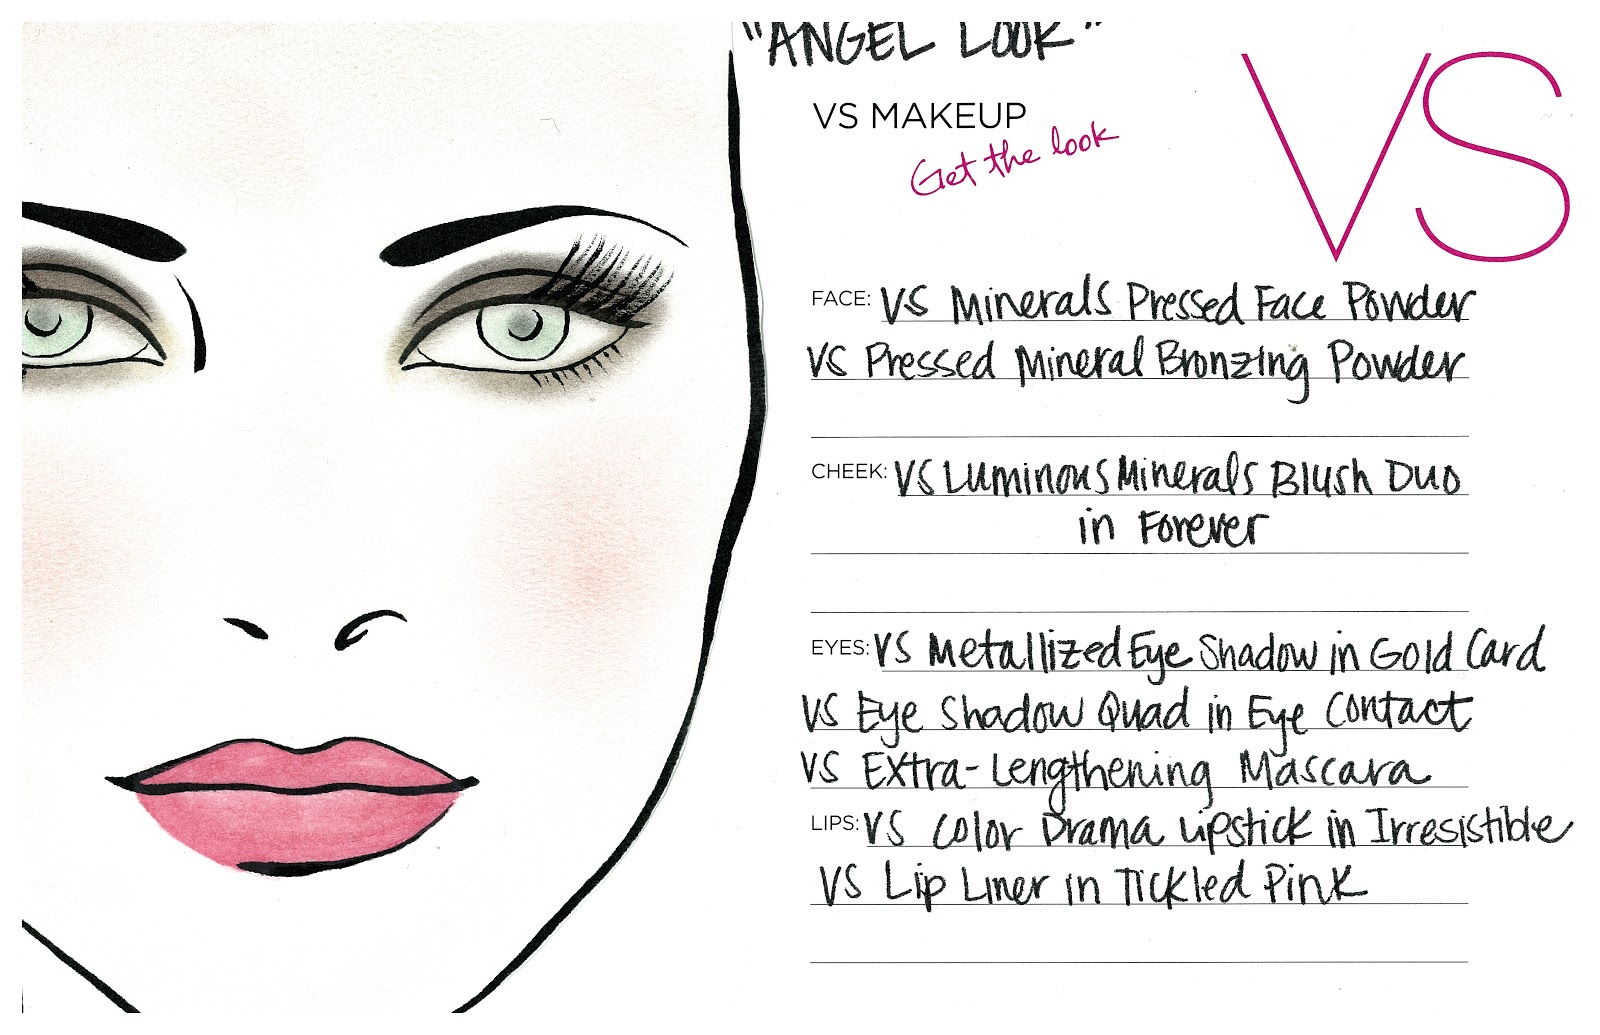 "ANGEL LOOK"
VS MAKEUP
Get the look
VS
FACE: VS Minerals Pressed Face Powder
VS Pressed Mineral Bronzing Powder
CHEEK: VS Luminous Minerals Blush Duo
in Forever
EYES: VS Metallized Eye Shadow in Gold Card
VS Eye Shadow Quad in Eye Contact
VS Extra-Lengthening Mascara
LIPS: VS Color Drama Lipstick in Irresistible
VS Lip Liner in Tickled Pink